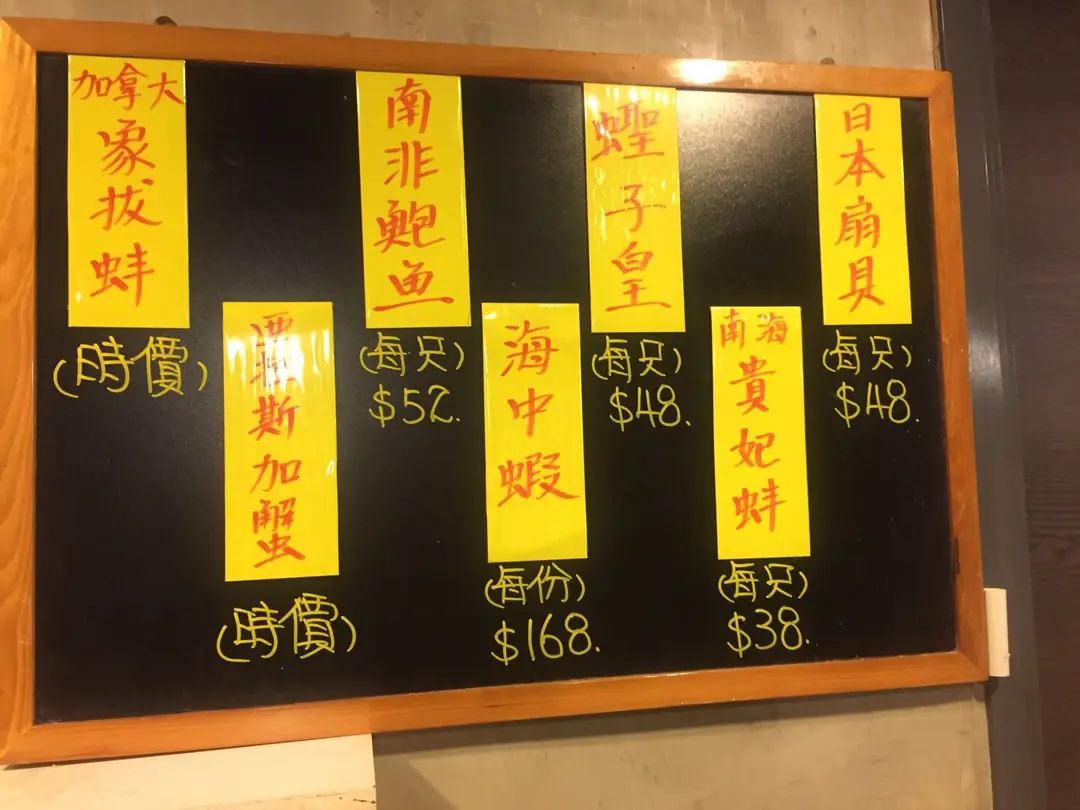 加拿大
象拔蚌
(時價)
斯加蟹
(時價)
南非鮑鱼
(每只)
$52.
海中蝦
(每份)
$168.
蟶子皇
(每只)
$48.
南海
貴妃蚌
(每只)
$38.
日本扇貝
(每只)
$48.